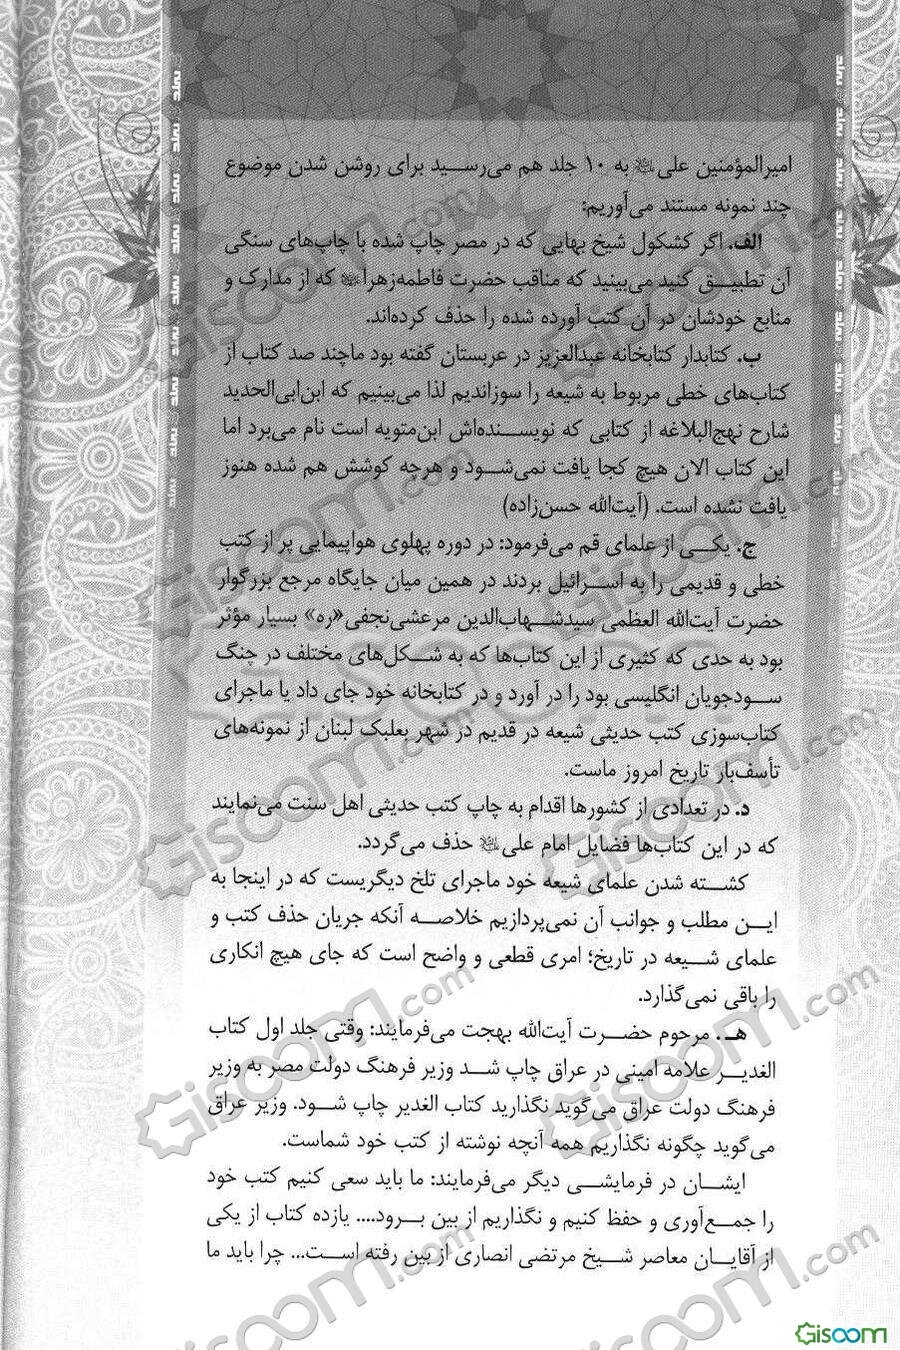 امیرالمؤمنین علی به ۱۰ جلد هم می‌رسید برای روشن شدن موضوع
چند نمونه مستند می‌آوریم:
الف. اگر کشکول شیخ بهایی که در مصر چاپ شده با چاپ‌های سنگی
آن تطبیق کنید می‌بینید که مناقب حضرت فاطمه‌زهرا که از مدارک و
منابع خودشان در آن کتب آورده شده را حذف کرده‌اند.
ب. کتابدار کتابخانه عبدالعزیز در عربستان گفته بود ماچند صد کتاب از
کتاب‌های خطی مربوط به شیعه را سوزاندیم لذا می‌بینیم که ابن‌ابی‌الحدید
شارح نهج‌البلاغه از کتابی که نویسنده‌اش ابن‌متویه است نام می‌برد اما
این کتاب الان هیچ کجا یافت نمی‌شود و هرچه کوشش هم شده هنوز
یافت نشده است. (آیت‌الله حسن‌زاده)
ج. یکی از علمای قم می‌فرمود: در دوره پهلوی هواپیمایی پر از کتب
خطی و قدیمی را به اسرائیل بردند در همین میان جایگاه مرجع بزرگوار
حضرت آیت‌الله العظمی سیدشهاب‌الدین مرعشی‌نجفی«ره» بسیار مؤثر
بود به حدی که کثیری از این کتاب‌ها که به شکل‌های مختلف در چنگ
سودجویان انگلیسی بود را در آورد و در کتابخانه خود جای داد یا ماجرای
کتاب‌سوزی کتب حدیثی شیعه در قدیم در شهر بعلبک لبنان از نمونه‌های
تأسف‌بار تاریخ امروز ماست.
د. در تعدادی از کشورها اقدام به چاپ کتب حدیثی اهل سنت می‌نمایند
که در این کتاب‌ها فضایل امام علی حذف می‌گردد.
کشته شدن علمای شیعه خود ماجرای تلخ دیگریست که در اینجا به
این مطلب و جوانب آن نمی‌پردازیم خلاصه آنکه جریان حذف کتب و
علمای شیعه در تاریخ؛ امری قطعی و واضح است که جای هیچ انکاری
را باقی نمی‌گذارد.
هـ. مرحوم حضرت آیت‌الله بهجت می‌فرمایند: وقتی جلد اول کتاب
الغدیر علامه امینی در عراق چاپ شد وزیر فرهنگ دولت مصر به وزیر
فرهنگ دولت عراق می‌گوید نگذارید کتاب الغدیر چاپ شود. وزیر عراق
می‌گوید چگونه نگذاریم همه آنچه نوشته از کتب خود شماست.
ایشان در فرمایشی دیگر می‌فرمایند: ما باید سعی کنیم کتب خود
را جمع‌آوری و حفظ کنیم و نگذاریم از بین برود.... یازده کتاب از یکی
از آقایان معاصر شیخ مرتضی انصاری از بین رفته است... چرا باید ما
Gisoom